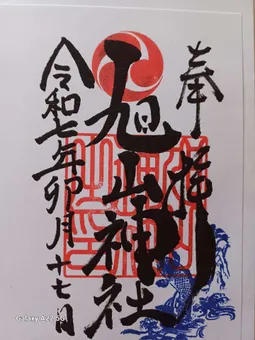 奉拝
旭山神社
令和七年卯月十七日